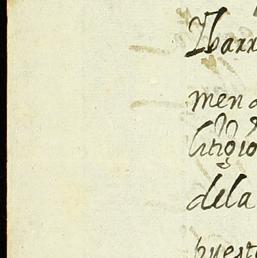 Ybarr
men
litigio
dela
puest